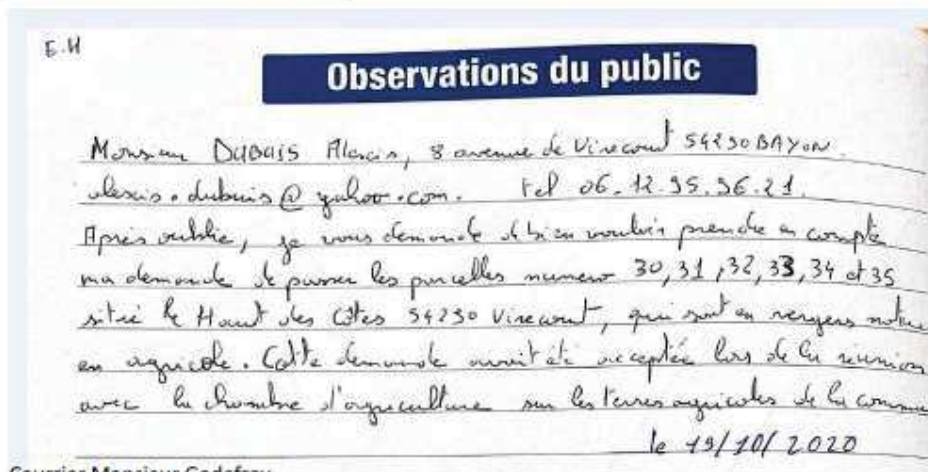 E.H
Observations du public
Monsieur DUBUIS Alexis, 8 avenue de Virecourt 54290 BAYON.
alexis.dubuis@yahoo.com. tel 06.12.95.96.21.
Après oublie, je vous demande de bien vouloir prendre en compte
ma demande de passer les parcelles numero 30, 31, 32, 33, 34 et 35
situé le Haut des Côtes 54290 Virecourt, qui sont en vergers
en agricole. Cette demande avait été acceptée lors de la réunion
avec la chambre d'agriculture sur les terres agricoles de la commune
le 19/10/2020
Courrier Monsieur Godefroy